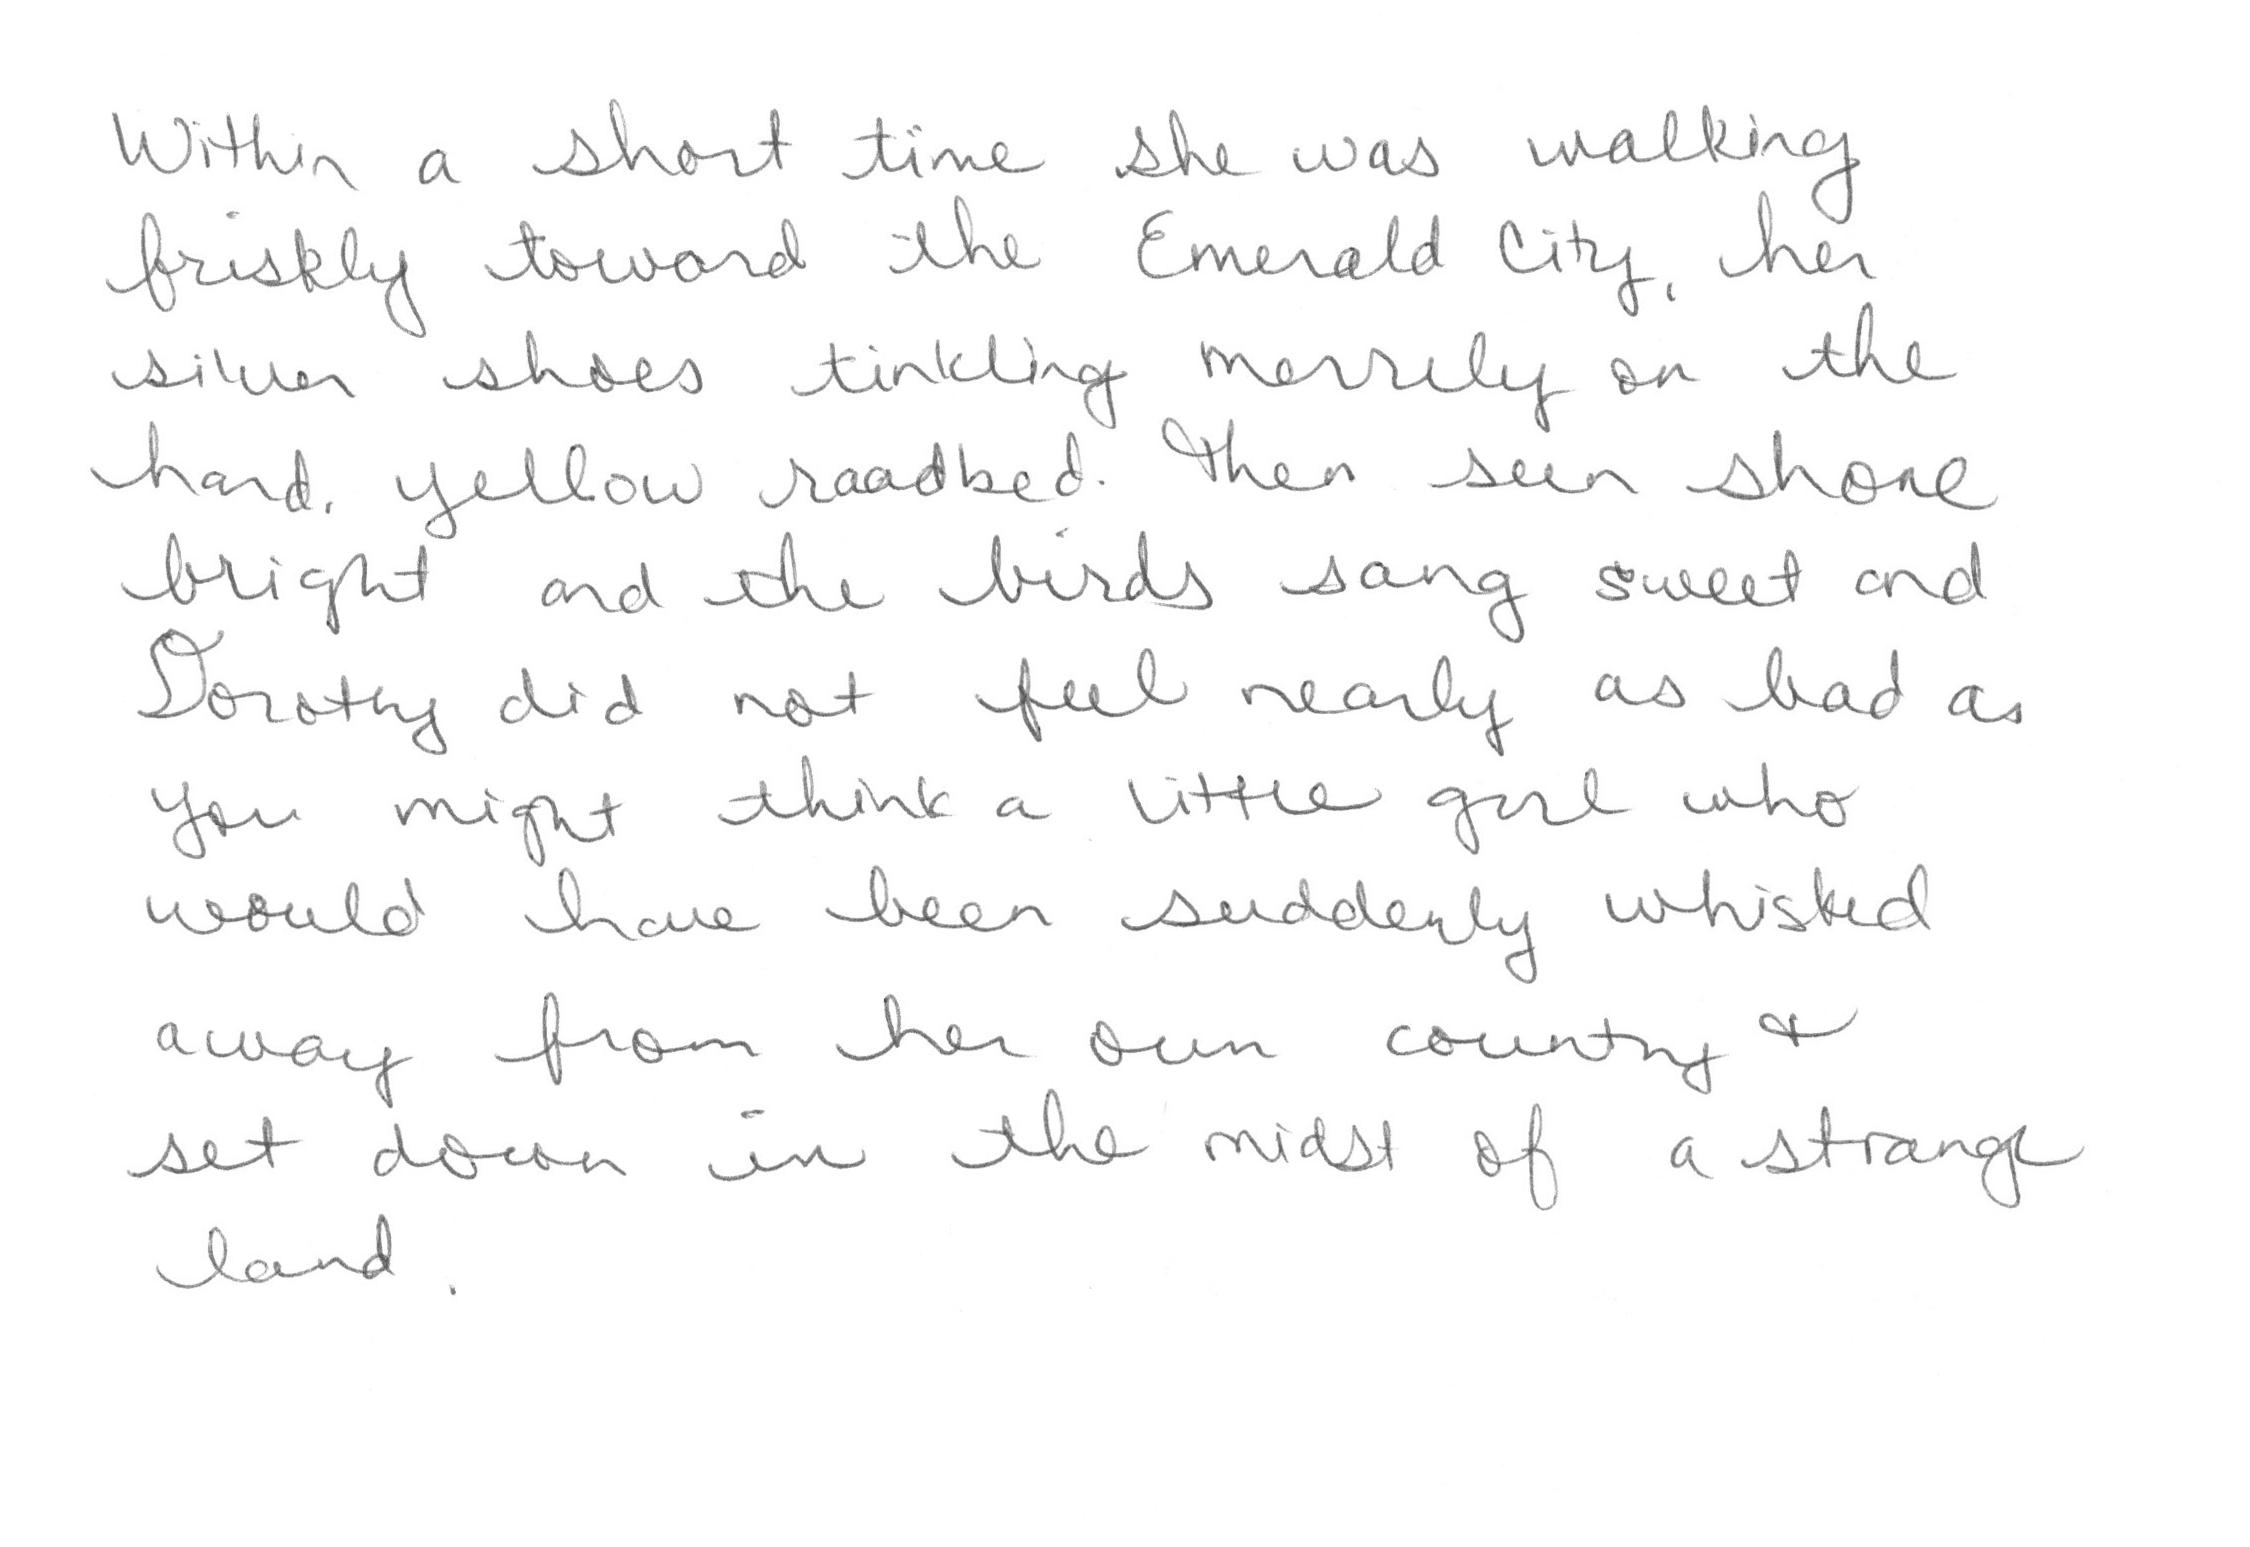 Within a short time she was walking
friskly toward the Emerald City, her
silver shoes tinkling merrily on the
hard, yellow roadbed. Then sun shone
bright and the birds sang sweet and
Dorothy did not feel nearly as bad as
you might think a little girl who
would have been suddenly whisked
away from her own country &
set down in the midst of a strange
land.